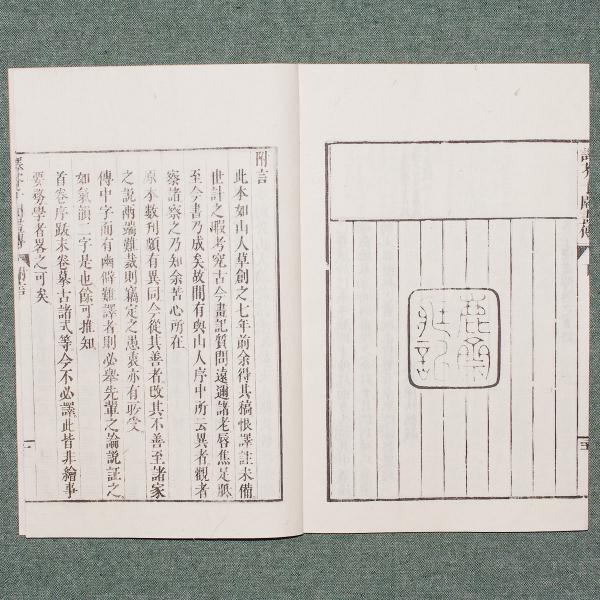 附言
此本如山人草創之七年前余得其稿恨譯註未備
世計之暇考究古今畫記質問遠邇諸老唇焦足胝
至今書乃成矣故間有與山人序中所云異者觀者
察諸察之乃知余苦心所在
原本數刊頗有異同今從其善者改其不善至諸家
之說兩端難裁則竊定之愚衷亦有所受
傳中字面有幽僻難譯者則必舉先輩之論說証之
如氣韻二字是也餘可推知
首卷序跋末卷摹古諸式等今不必譯此皆非繪事
要務學者畧之可矣
附言